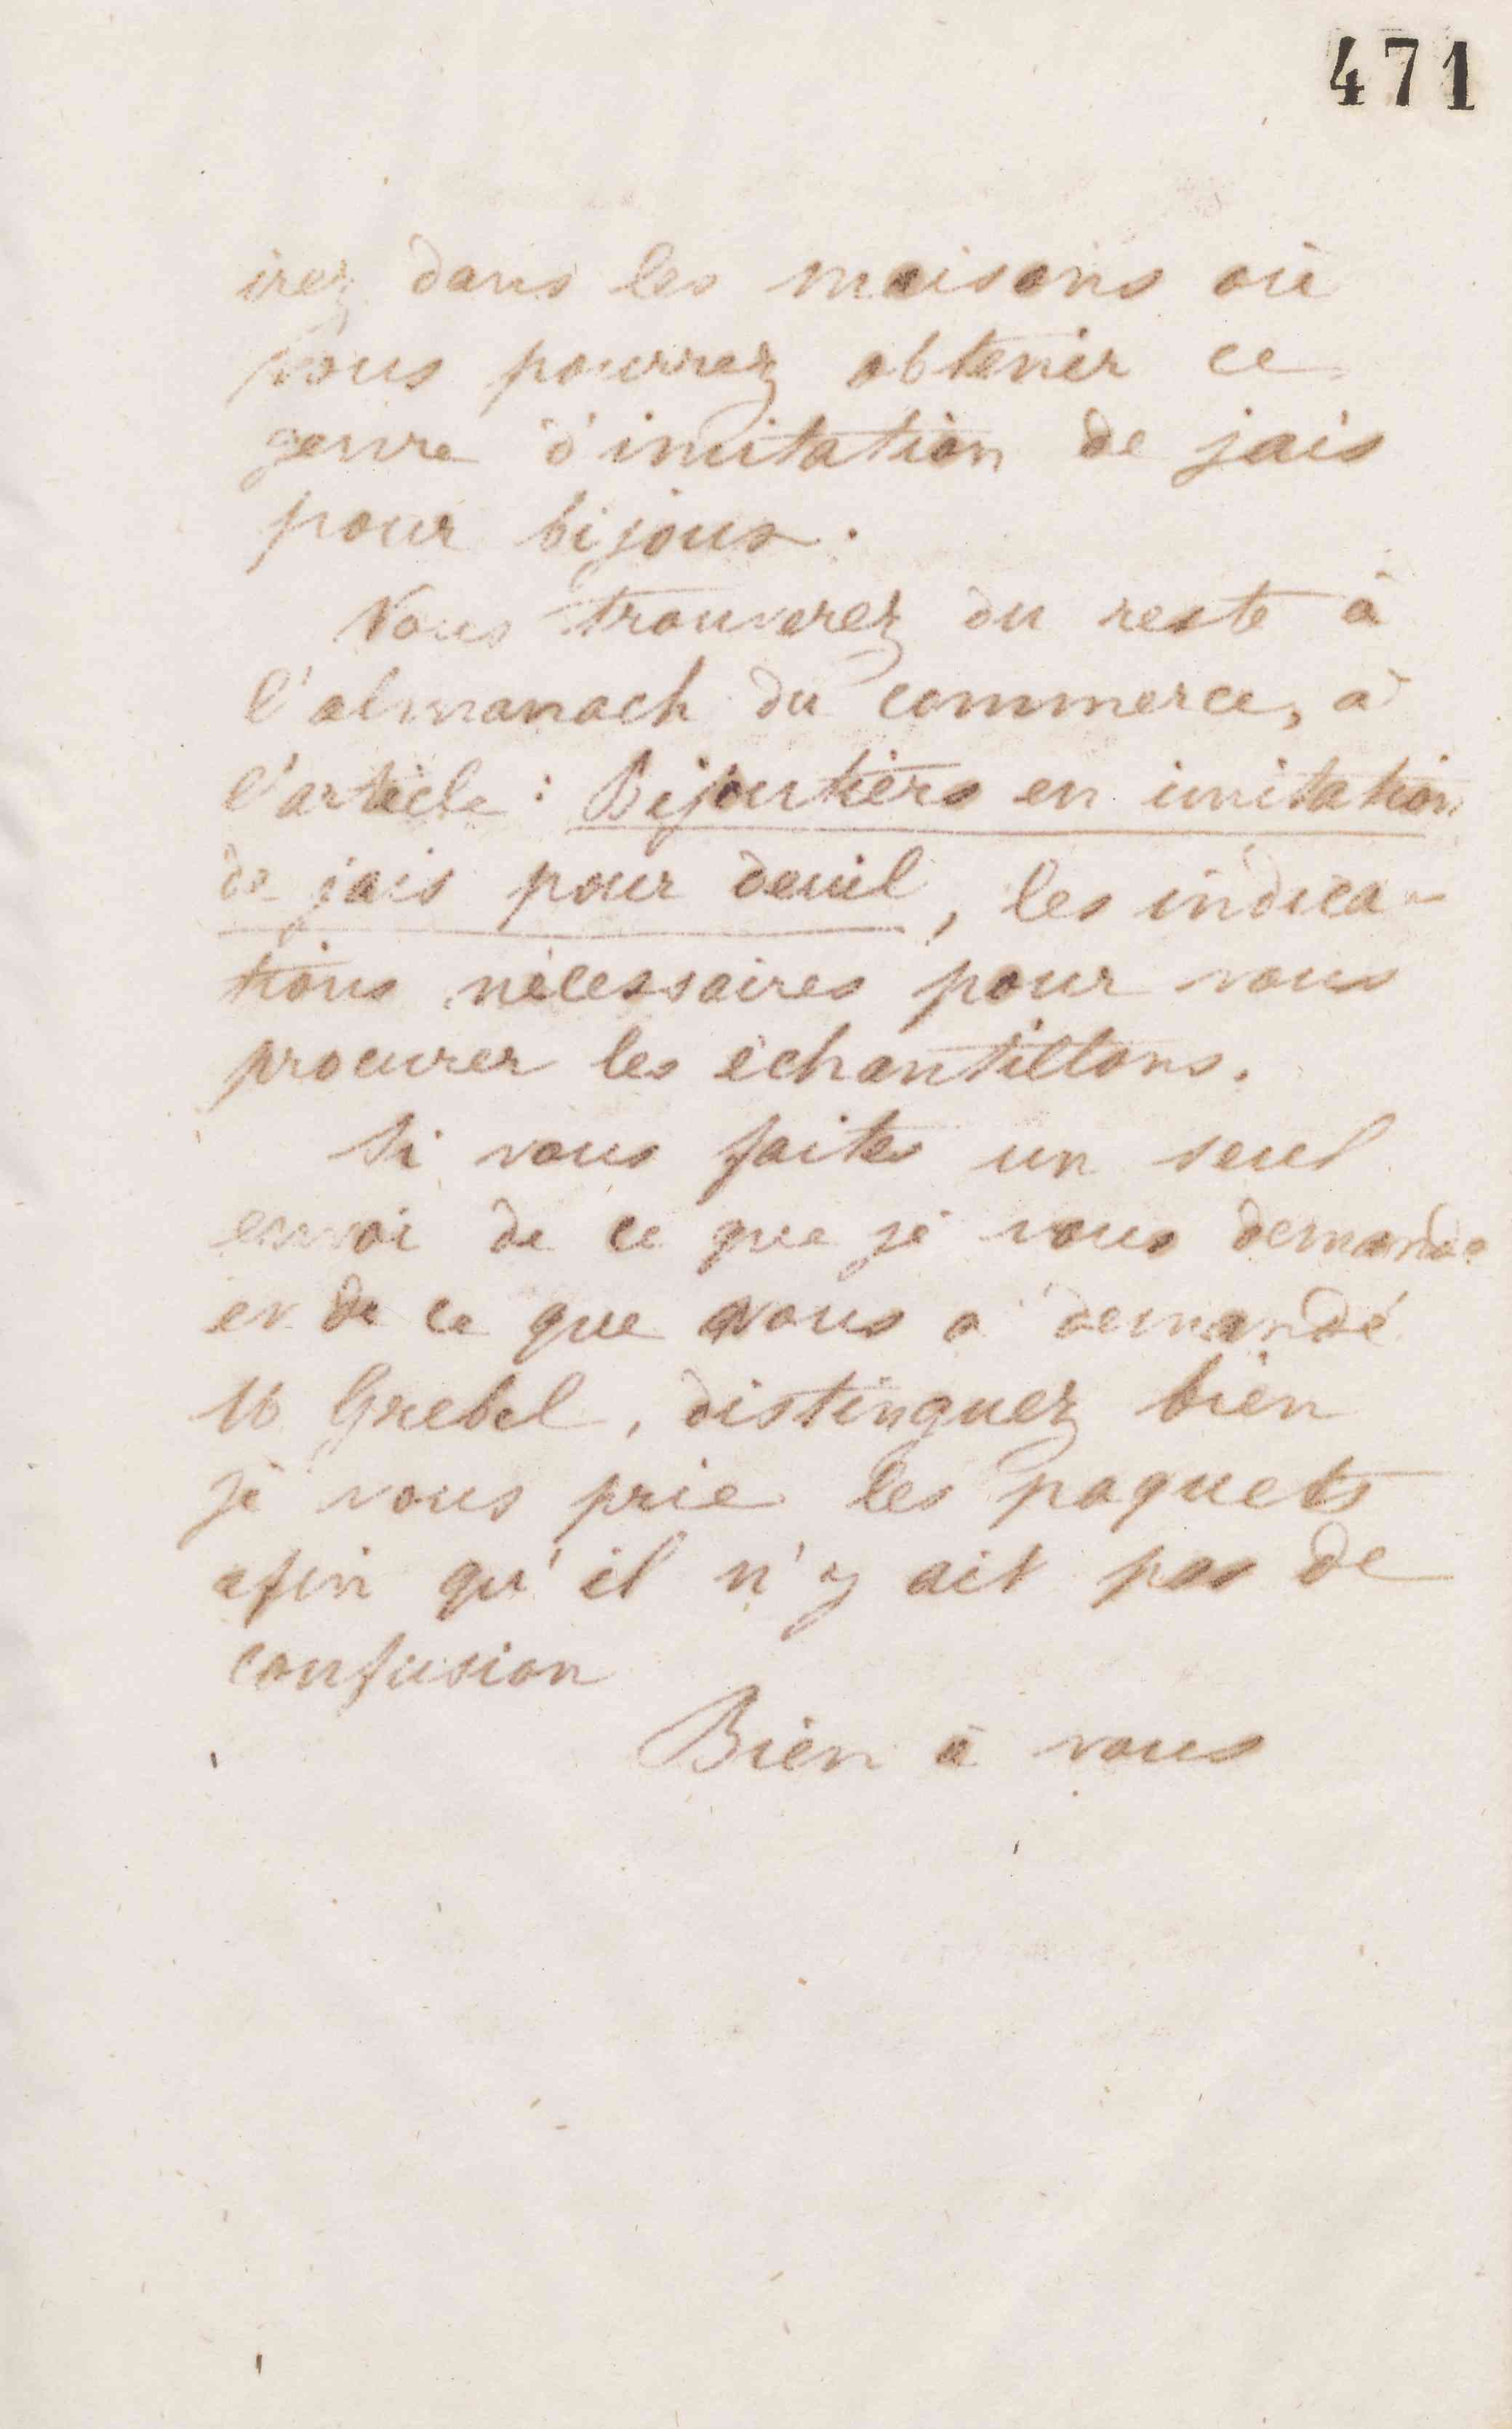 471
irez dans les maisons où
vous pourrez obtenir ce
genre d'imitation de jais
pour bijoux.
Vous trouverez du reste à
l'almanach du commerce, à
l'article : Bijoutiers en imitation
de jais pour deuil, les indica-
tions nécessaires pour vous
procurer les échantillons.
Si vous faites un seul
envoi de ce que je vous demande
et de ce que vous a demandé
M Grebel, distinguez bien
je vous prie les paquets
afin qu'il n'y ait pas de
confusion
Bien à vous